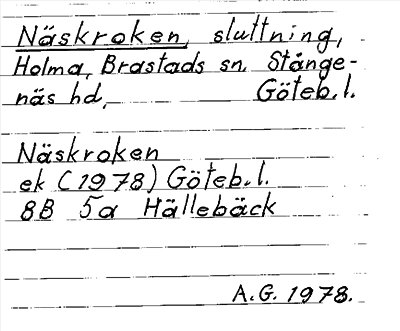 Näskroken, sluttning,
Holma, Brastads sn. Stånge-
näs hd, Göteb.l.
Näskroken
ek (1978) Göteb.l.
8B 5a Hällebäck
A.G. 1978.